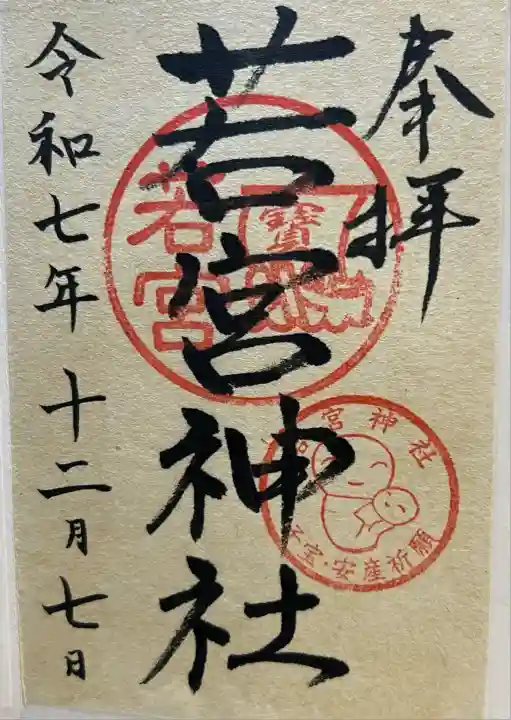 奉拝
若宮神社
令和七年十二月七日
若宮
寳
若宮神社
子宝・安産祈願